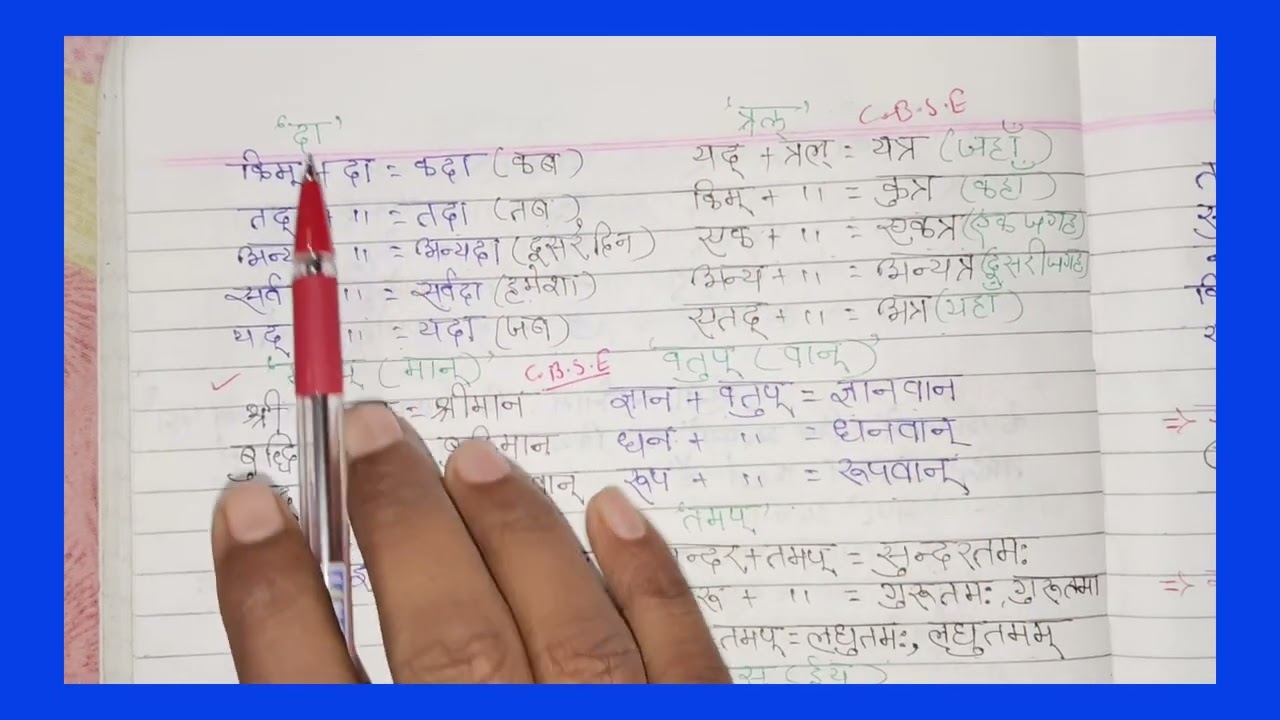 'दा'
किम् + दा = कदा (कब)
तद् + " = तदा (तब)
अन्य " = अन्यदा (दूसरे दिन)
सर्व " = सर्वदा (हमेशा)
यद् " = यदा (जब)
(मान्)' C.B.S.E
श्री = श्रीमान
बुद्धि
वान्
'त्रल्' C.B.S.E
यद् + त्रल् = यत्र (जहाँ)
किम् + " = कुत्र (कहा)
एक + " = एकत्र (एक जगह)
अन्य + " = अन्यत्र (दुसरी जगह)
एतद् + " = अत्र (यहाँ)
'वतुप् (वान्)'
ज्ञान + वतुप् = ज्ञानवान
धन + " = धनवान्
रूप + " = रूपवान्
'तमप्'
न्दर + तमप् = सुन्दरतमः
रू + " = गुरूतमः, गुरूतमा
तमप् = लघुतमः, लघुतमम्
(ईय)